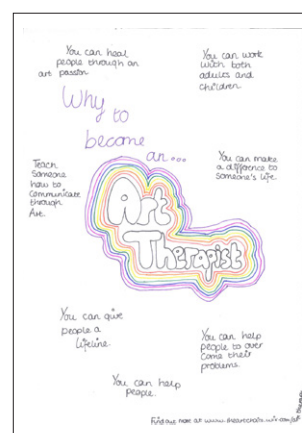 You can heal
people through an
art passion
You can work
with both
adults and
children
Why to
become
an...
Teach
someone
how to
communicate
through
Art.
You can make
a difference to
someone's life
Art
Therapist
You can give
people a
lifeline.
You can help
people to over
come their
problems.
You can help
people.
Find out more at www.